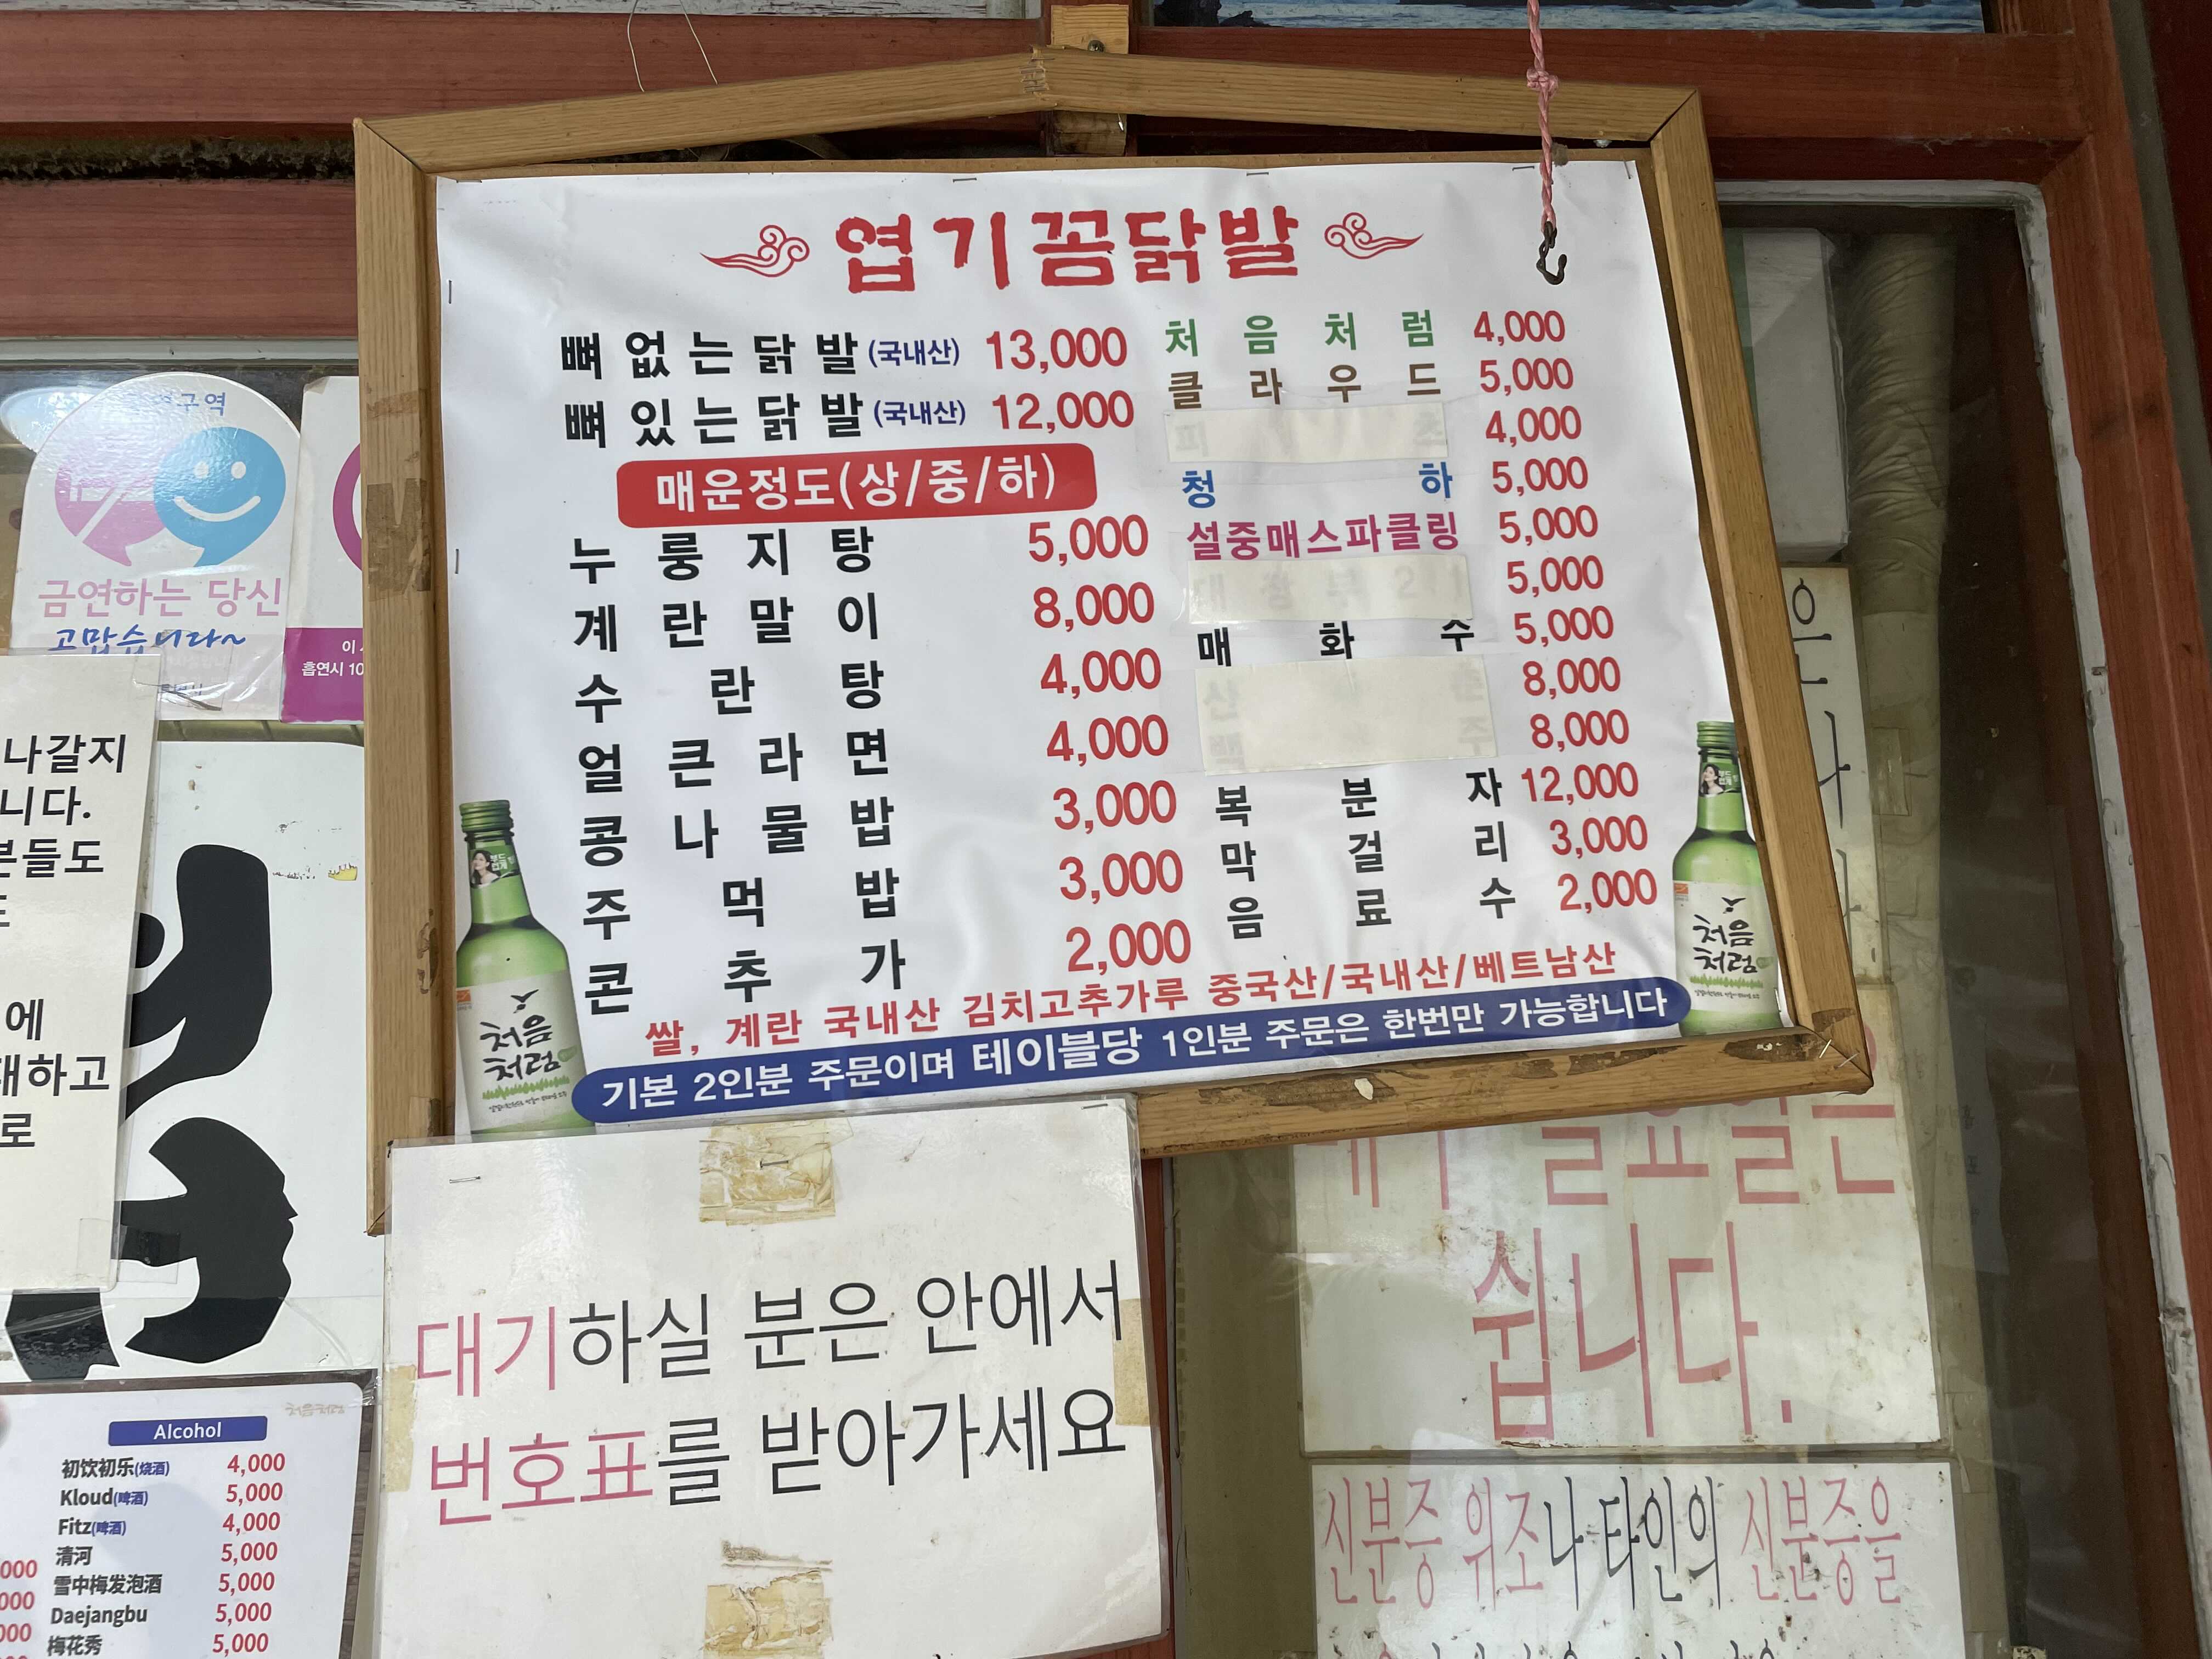 엽기꼼닭발
뼈없는닭발(국내산) 13,000
뼈있는닭발(국내산) 12,000
매운정도(상/중/하)
누룽지탕 5,000
계란말이 8,000
수란탕 4,000
얼큰라면 4,000
콩나물밥 3,000
주먹밥 3,000
콘추가 2,000
처음처럼 4,000
클라우드 5,000
4,000
청하 5,000
설중매스파클링 5,000
5,000
매화수 5,000
8,000
8,000
복분자 12,000
막걸리 3,000
음료수 2,000
쌀, 계란 국내산 김치고추가루 중국산/국내산/베트남산
기본 2인분 주문이며 테이블당 1인분 주문은 한번만 가능합니다
처음
처럼
처음
처럼
대기하실 분은 안에서
번호표를 받아가세요
금연하는 당신
고맙습니다~
흡연시 10
나갈지
니다.
분들도
에
대하고
로
Alcohol
初饮初乐(烧酒) 4,000
Kloud(啤酒) 5,000
Fitz(啤酒) 4,000
清河 5,000
雪中梅发泡酒 5,000
Daejangbu 5,000
梅花秀 5,000
일요일은
쉽니다.
신분증 위조나 타인의 신분증을